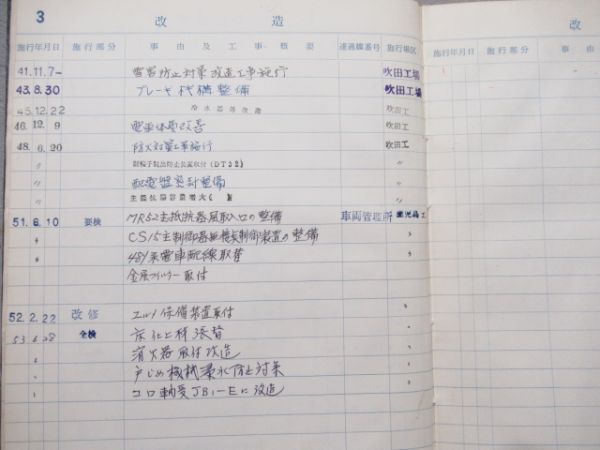 3 改造
施行年月日 施行部分 事由及工事概要 達通牒番号 施行場区
41.11.7- 雪害防止対策改造工事施行 吹田工場
43.8.30 ブレーキ機構整備 吹田工場
45.12.22 冷水器等改造 吹田工
46.12.9 電車体質改善 吹田工
48.6.20 防火対策工事施行 吹田工
〃 (DT32) 〃
〃 配電盤 整備
〃 主抵抗器容量増大 〃
51.6.10 要検 MR52主抵抗器風取入口の整備 車両管理所 鹿児島工
〃 CS15主制御器 制御装置の整備 〃
〃 489系電車配線取替 〃
金属フィルター取付
52.2.22 改修 保備装置取付 〃
53.6.28 全検 床化上材張替 〃
〃 消火器取付改造 〃
〃 戸じめ機械凍水防止対策 〃
〃 コロ軸受JB1-Eに改造 〃
施行年月日 施行部分 事由